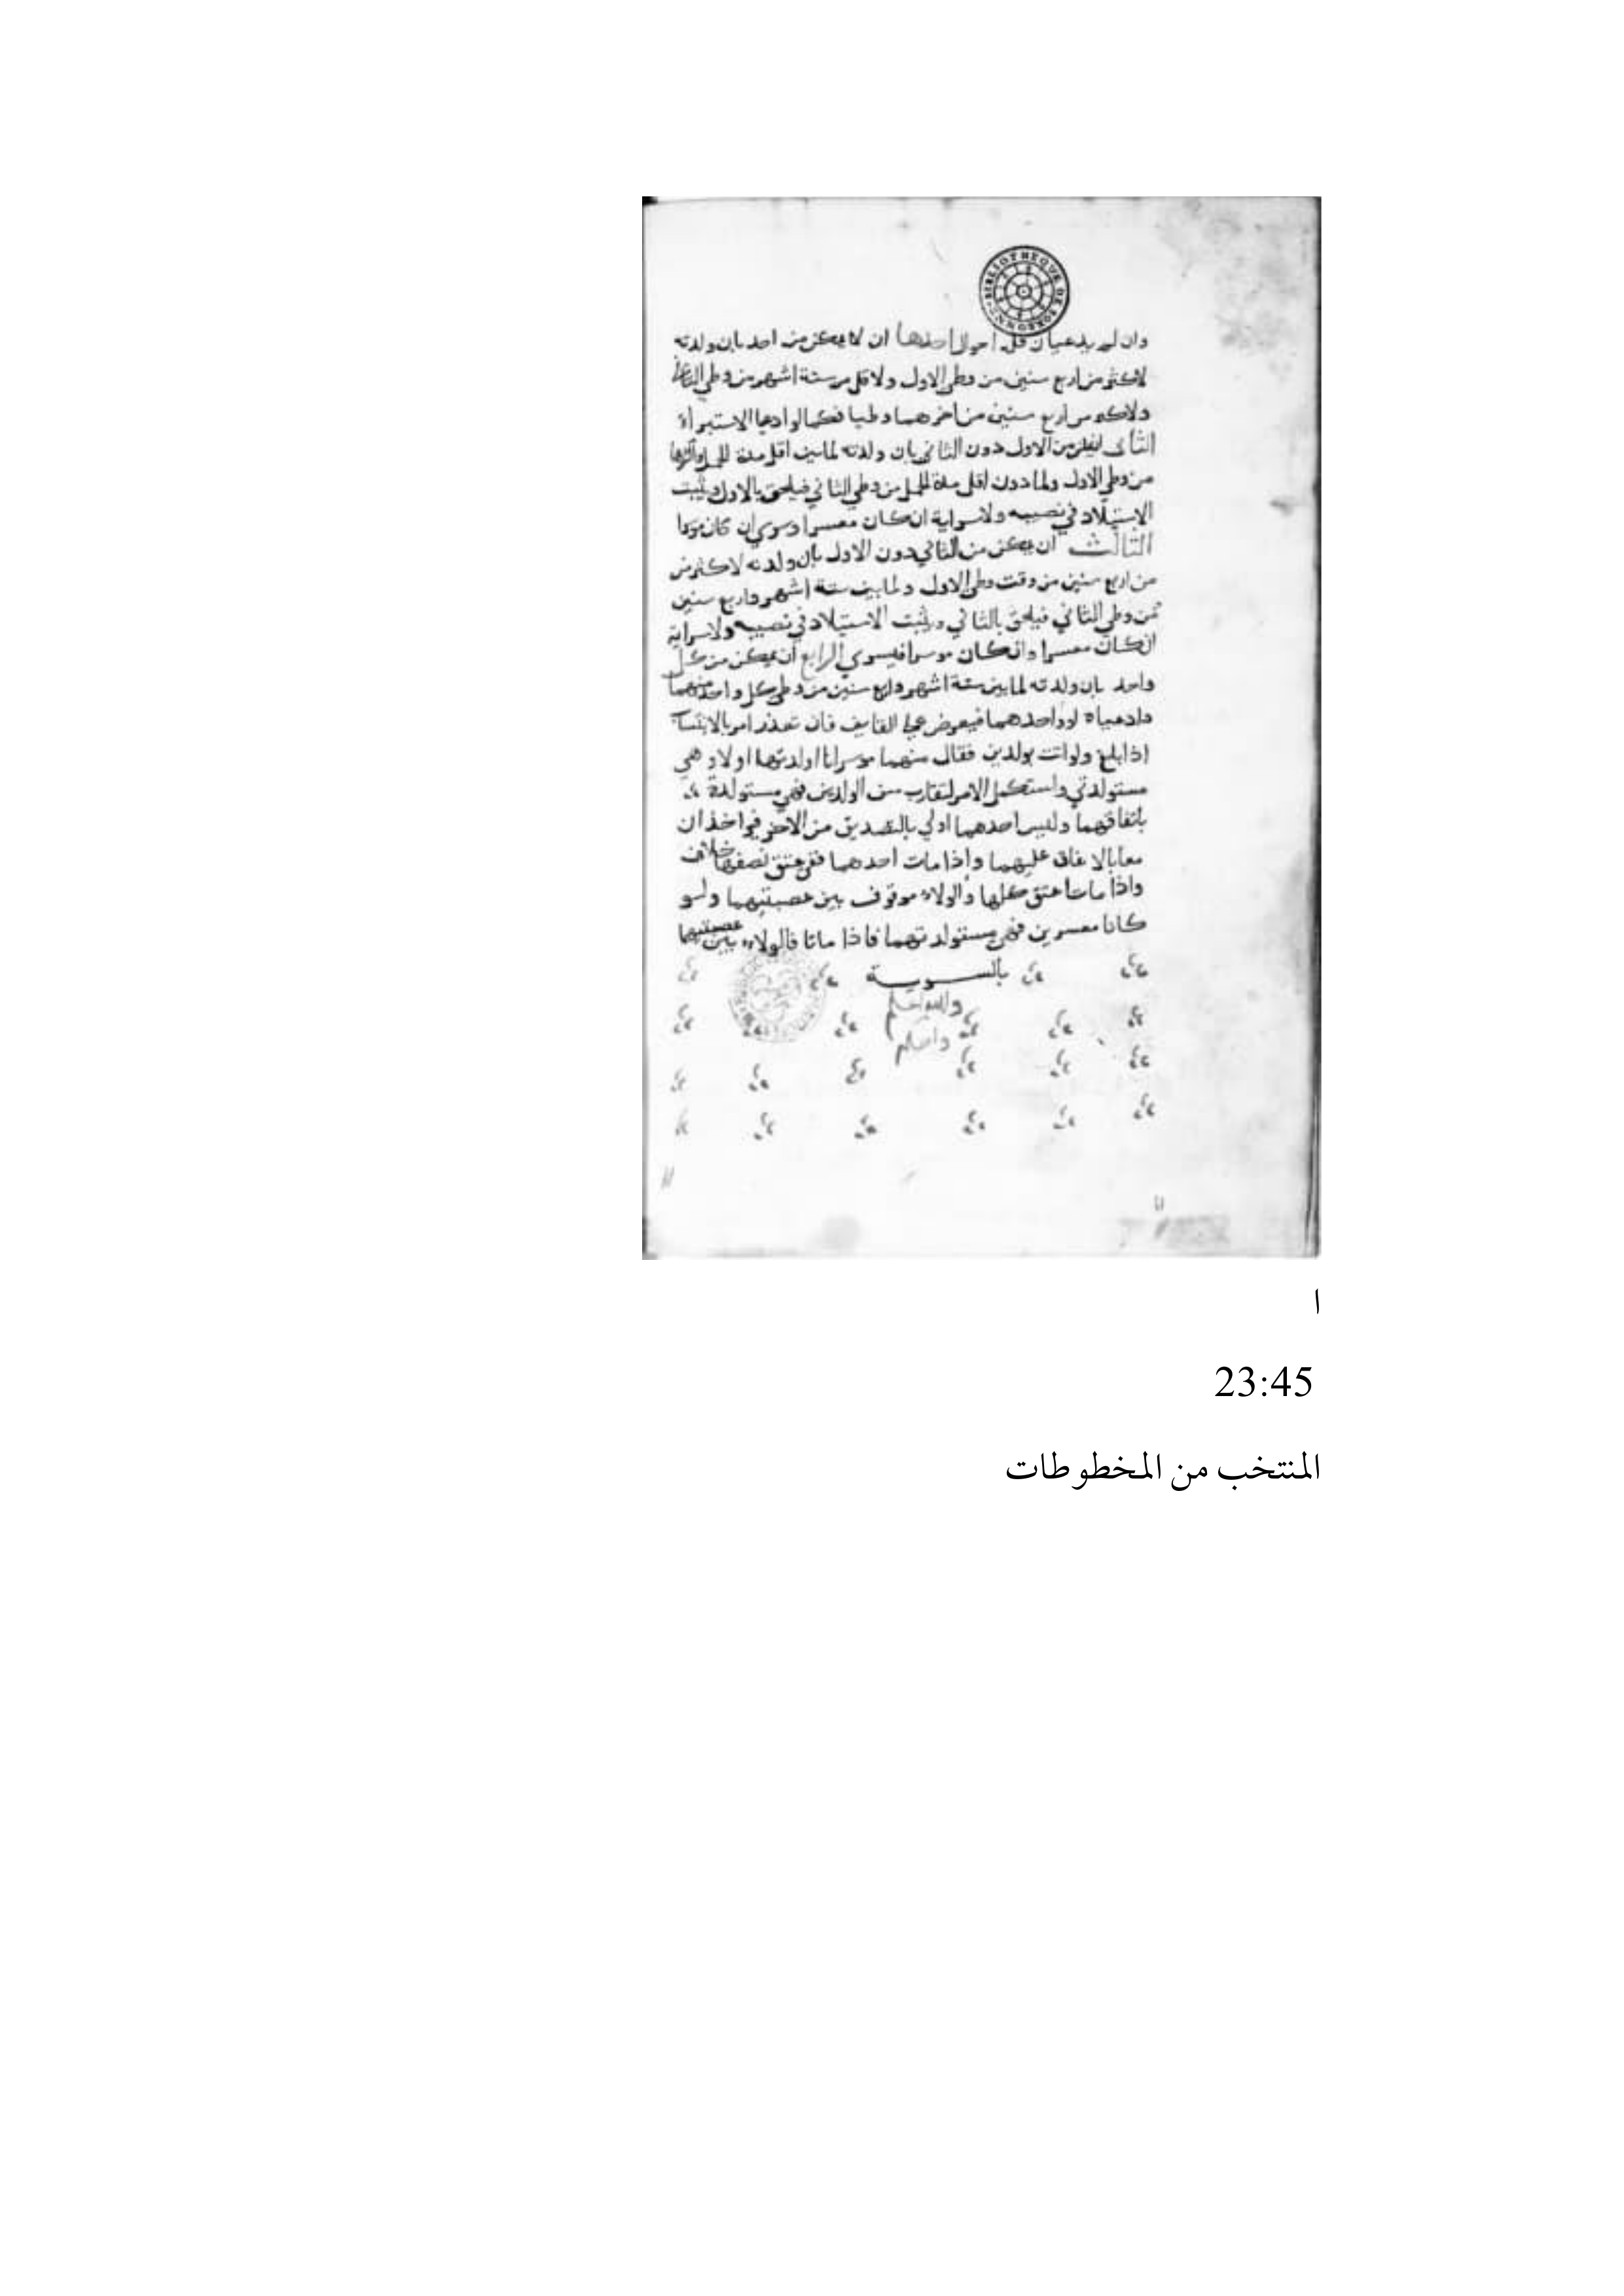 BIBLIOTHEQUE DE SORBONNE
وان لم يدعيان فله احوال احدها ان لا يمكن من احد بان ولدته
لاكثر من اربع سنين من وطي الاول ولاقل من ستة اشهر من وطي
ولاكثر من اربع سنين من اخرهما وطيا فكما لو ادعيا الاستبراء
الثاني من الاول دون الثاني بان ولدته لما بين اقل مدة الحمل واكثرها
من وطي الاول ولما دون اقل مدة الحمل من وطي الثاني فيلحق بالاول ويثبت
الاستيلاد في نصيبه ولا سراية ان كان معسرا وسري ان كان موسرا
الثالث ان يمكن من الثاني دون الاول بان ولدته لاكثر من
من اربع سنين من وقت وطي الاول ولما بين ستة اشهر واربع سنين
من وطي الثاني فيلحق بالثاني ويثبت الاستيلاد في نصيبه ولا سراية
ان كان معسرا وان كان موسرا فيسري الرابع ان يمكن من كل
واحد بان ولدته لما بين ستة اشهر واربع سنين من وطي كل واحد منهما
وادعياه او واحدهما فيعرض علي القايف فان تعذر امر بالانتساب
اذا بلغ ولو اتت بولدين فقال منهما موسرانا اولدتها اولا وهي
مستولدتي واستكمل الامر لتقارب سن الولدين فهي مستولدة
باتفاقهما وليس احدهما اولي بالتصديق من الاخر فيواخذان
معا بالانفاق عليهما واذا مات احدهما ففي عتق نصفها خلاف
واذا مات اعتق كلها والولاء موقوف بين عصبتيهما ولو
كانا معسرين فهي مستولدتهما فاذا ماتا فالولاء بين عصبتيهما
بالسوية
والله اعلم
واحكم
ا
23:45
المنتخب من المخطوطات